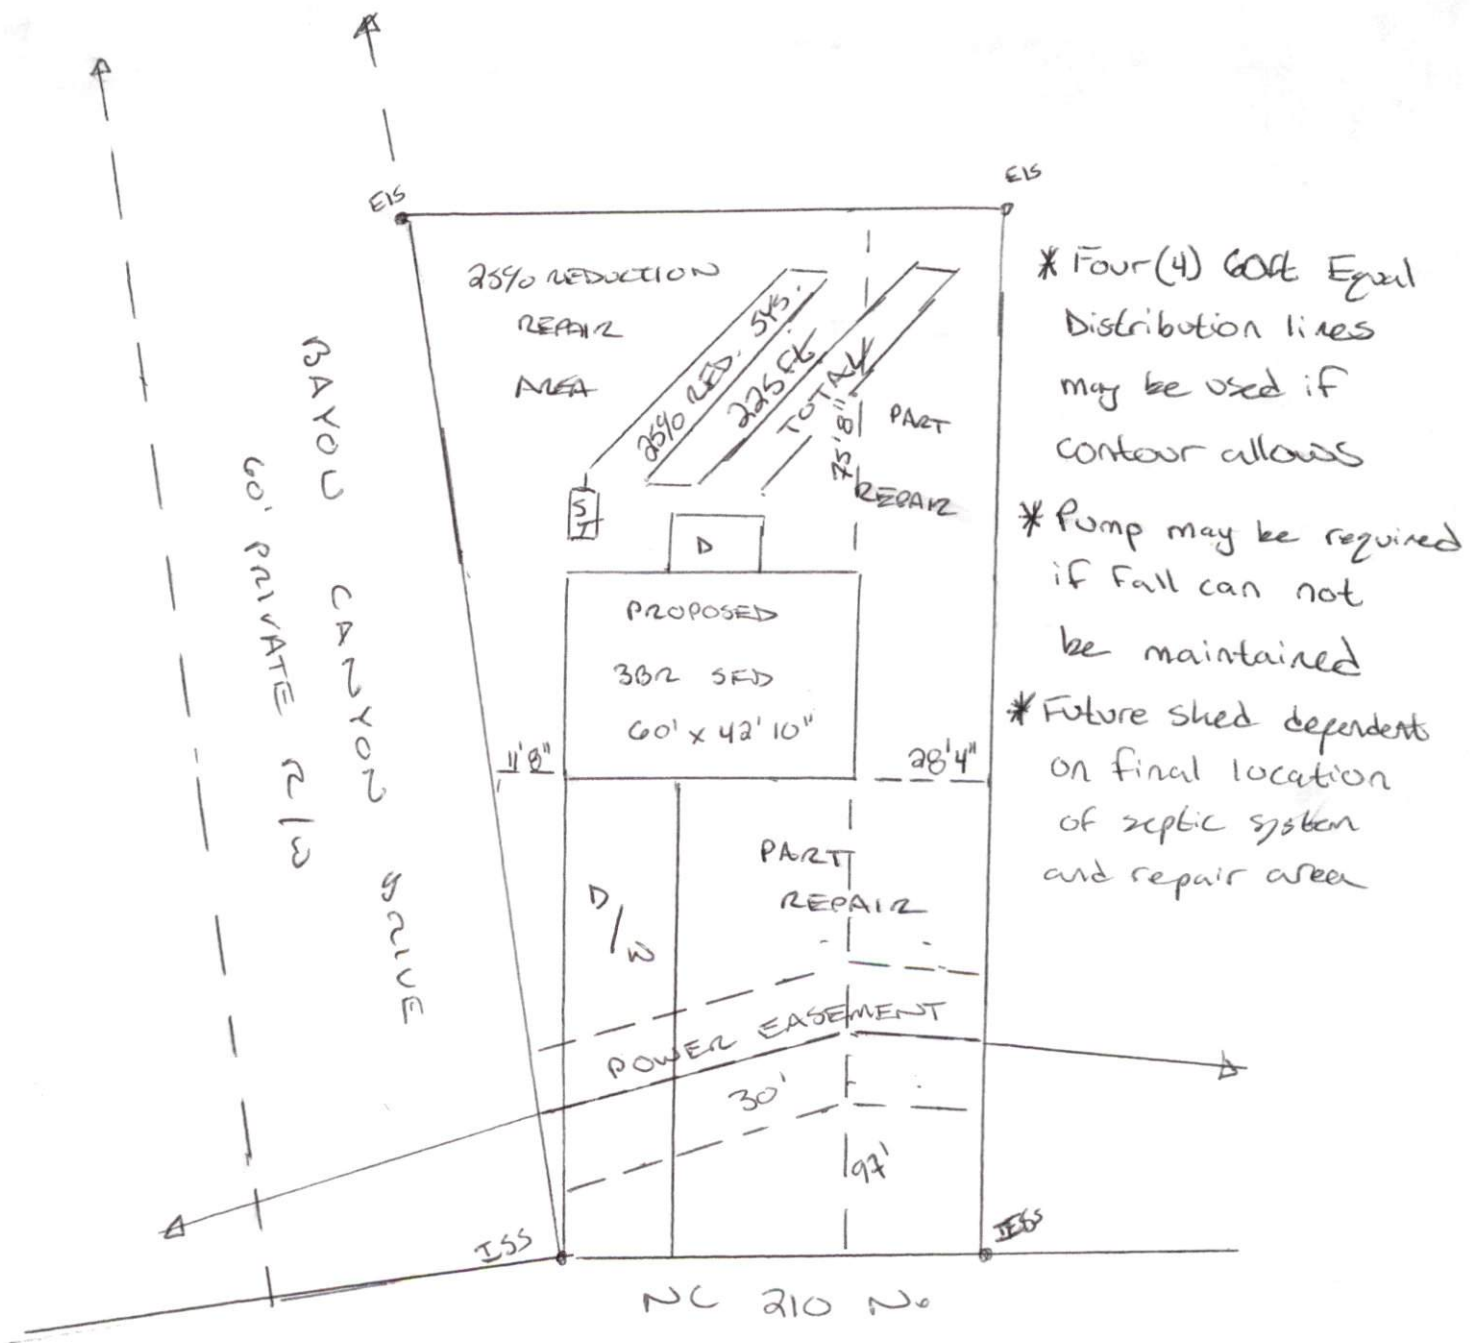 EIS
EIS
25% REDUCTION
REPAIR
AREA
25% RED. SYS.
225 ft
TOTAL
75' 8"
PART
REPAIR
ST
D
PROPOSED
3BR SFD
60' x 42' 10"
11'8"
28'4"
PART
REPAIR
D/W
POWER EASEMENT
30'
97'
ISS
NC 210 No
BAYOU CANYON DRIVE
60' PRIVATE R/W
* Four (4) 60ft Equal
Distribution lines
may be used if
contour allows
* Pump may be required
if fall can not
be maintained
* Future shed dependent
on final location
of septic system
and repair area